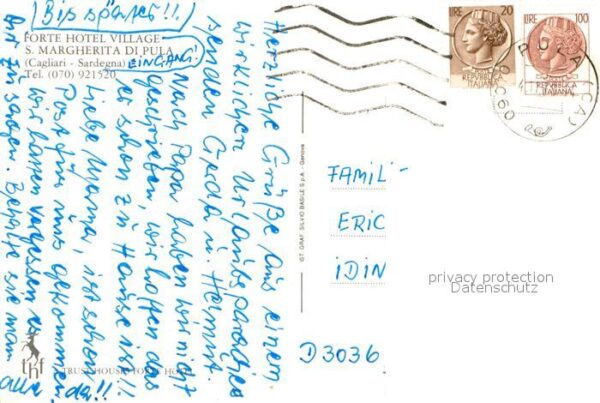 (Bis später!!!)
FORTE HOTEL VILLAGE
S. MARGHERITA DI PULA
(Cagliari - Sardegna)
Tel. (070) 921520
EINGANG!
Herzliche Grüße aus einem
wirklichen Urlaubsparadies
senden Gradi u. Helmut.
Nach Papa haben wir nicht
geschrieben, wir hoffen das
er schon zu Hause ist!!
Liebe Mama, ist schon
Post für uns gekommen
wir haben vergessen es
zu sagen. Behalte sie man
alle da!!
IST. GRAF. SILVIO BASILE S.p.A. - Genova
LIRE 20
REPVBBLICA
ITALIANA
LIRE 100
REPVBBLICA
ITALIANA
PULA (CA)
FAMILI-
ERIC
IDIN
D3036
privacy protection
Datenschutz
thf
TRUST HOUSES FORTE HOTEL